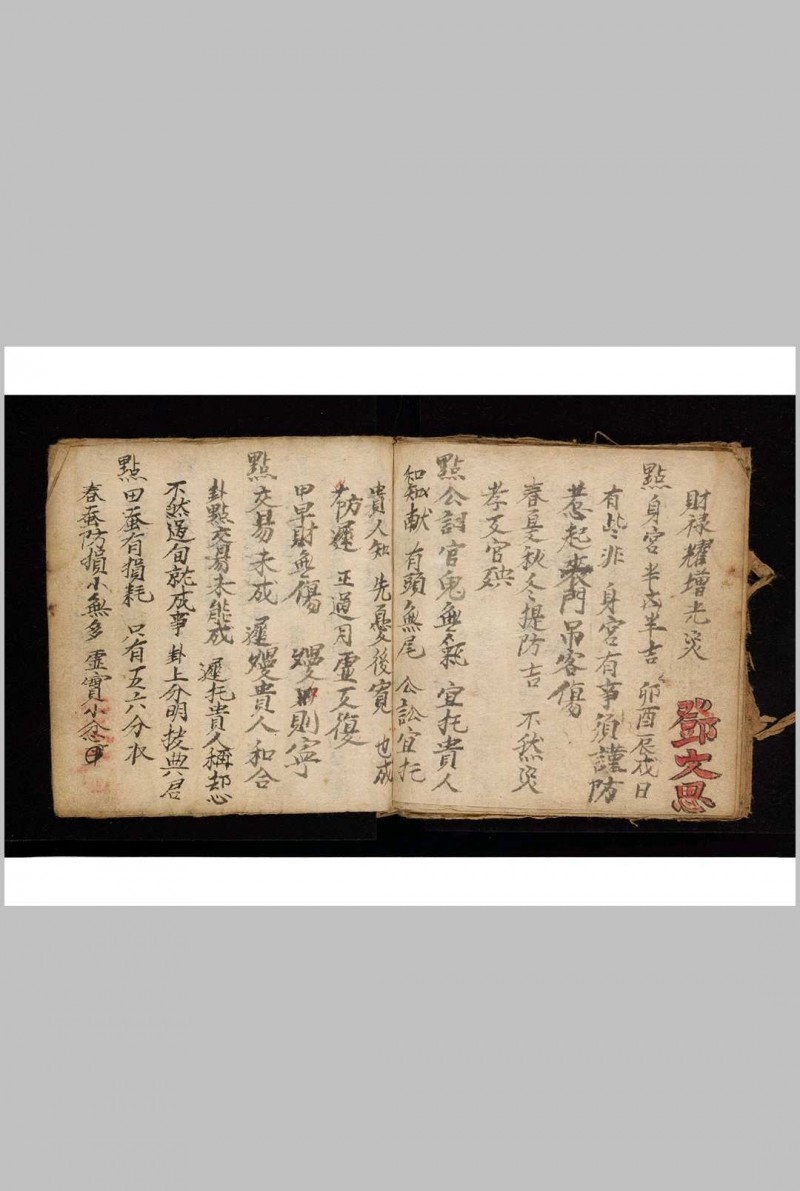 鄧文思
財禄耀增尤災
點身宮半凶半吉 卯酉辰戌日
有些非 身宮有事須謹防
惹起喪門吊客傷
春夏秋冬提防吉 不然災
孝又官殃
點公訶官鬼無氣 宜托貴人
知獻 有頭無尾 公訟宜托
貴人知 先憂後寛 也成
防運 正過月虛又復
甲早財無傷 慢則寧
點交易未成 遲慢貴人和合
卦點交易未能成 遲托貴人稱却心
不然過旬就成事 卦上分明技典君
點田蚕有損耗 只有五六分收
春蚕防損小無多 虛實小忿